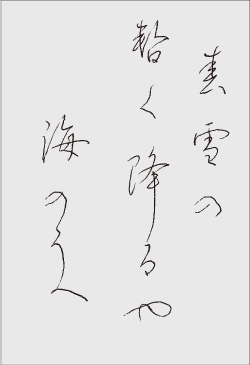 春雪の
暫く降るや
海のうへ